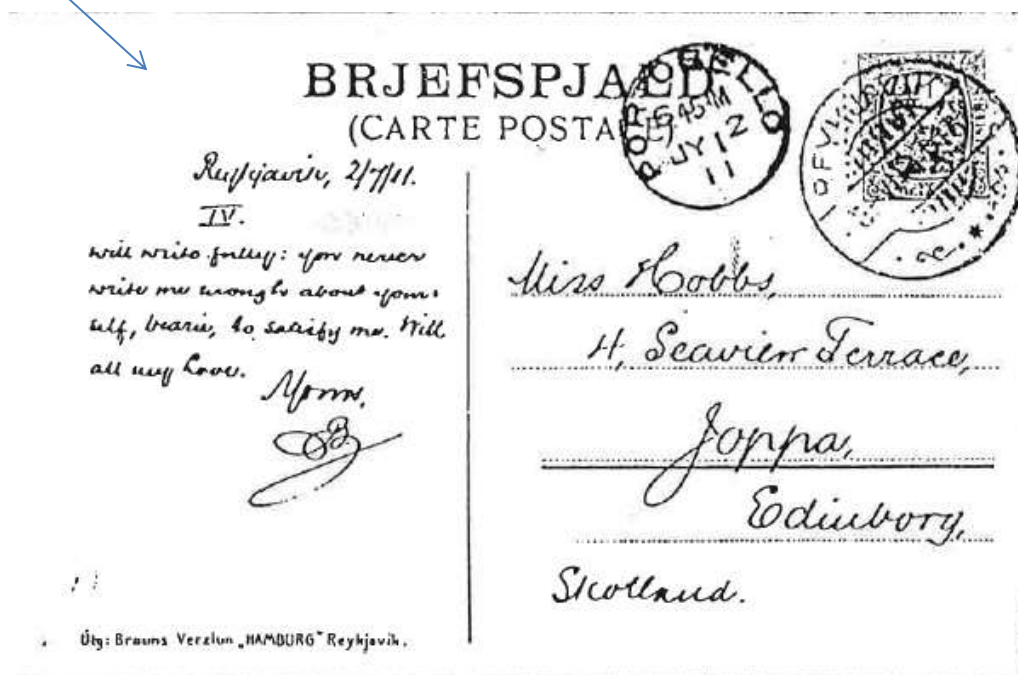 BRJEFSPJALD
(CARTE POSTALE)
PORTOBELLO
6.45 PM
JY 12
11
Reykjavik, 2/7/11.
IV.
will write fully: you never
write me enough about your-
self, dearie, to satisfy me. With
all my love.
Yours,
B
Miss Hobbs,
4, Seaview Terrace,
Joppa,
Edinborg,
Skotland.
Útg: Brauns Verzlun „HAMBURG" Reykjavik.